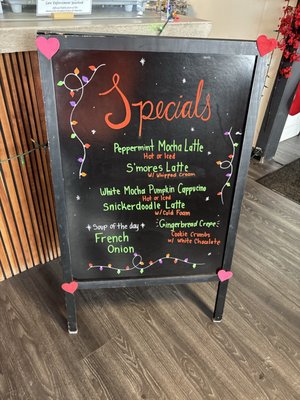 Law Enforcement Luncheon
Specials
Peppermint Mocha Latte
Hot or Iced
S'mores Latte
w/ Whipped Cream
White Mocha Pumpkin Cappucino
Hot or Iced
Snickerdoodle Latte
w/ Cold Foam
Soup of the day
French
Onion
Gingerbread Crepe
Cookie Crumbs
w/ White Chocolate